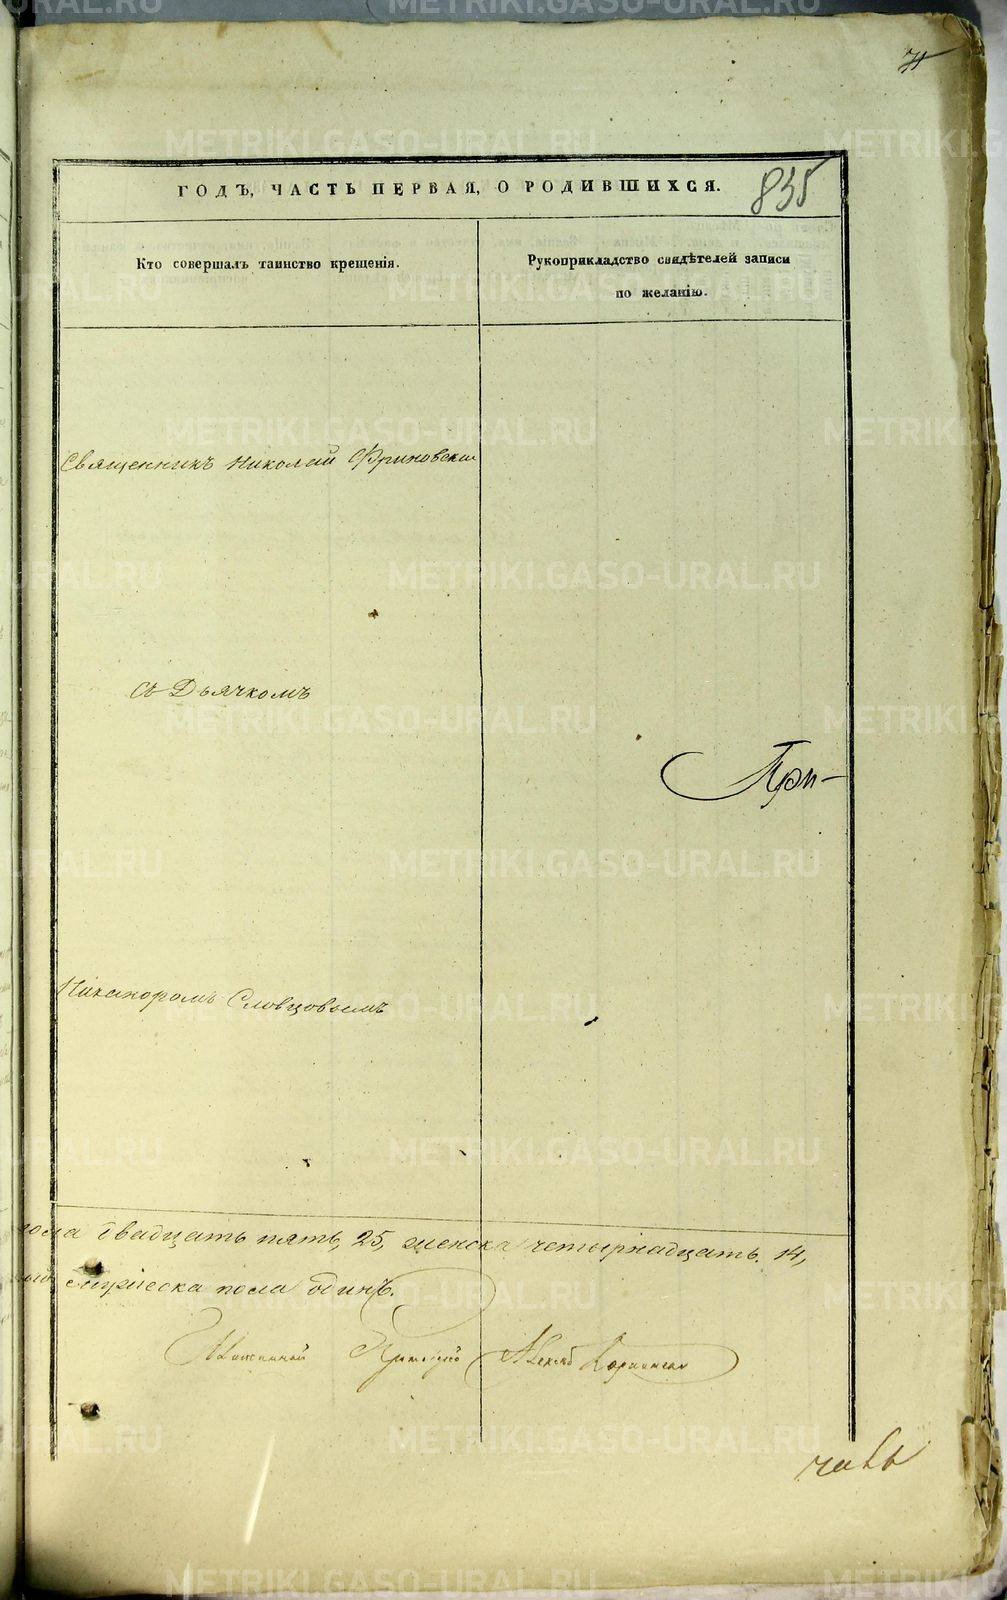 71
ГОДЪ, ЧАСТЬ ПЕРВАЯ, О РОДИВШИХСЯ.
835
Кто совершалъ таинство крещенія.
Рукоприкладство свидѣтелей записи
по желанію.
Священникъ Николай Фриновскій
съ Дьячкомъ
При-
Никаноромъ Словцовымъ
пола двадцать пять, 25, женска четырнадцать. 14,
мужеска пола одинъ.
METRIKI.GASO-URAL.RU